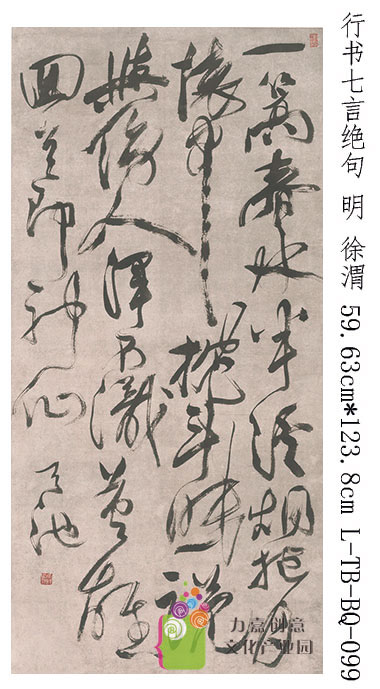 一篙春水半溪烟抱月
懷中枕斗眠說
與傍人渾不識英雄
回首即神仙 天池
行书七言绝句 明 徐渭 59.63cm*123.8cm L-TB-BQ-099
力嘉创意
文化产业园